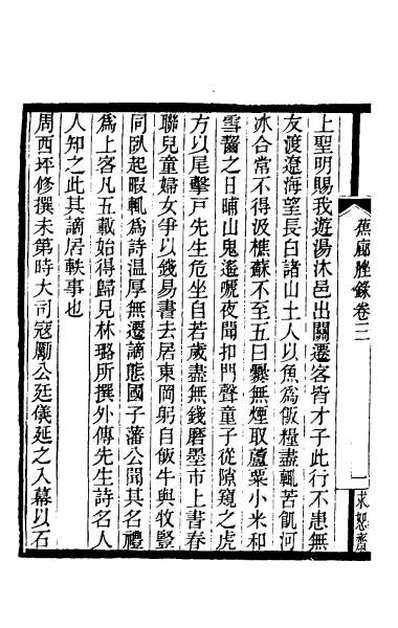 蕉廊脞錄卷三
一
求恕齋
上聖明賜我遊湯沐邑出關遷客皆才子此行不患無
友渡遼海望長白諸山土人以魚爲飯糧盡輒苦飢河
冰合常不得汲樵蘇不至五日爨無煙取蘆粟小米和
雪齧之日晡山鬼遙嗁夜聞扣門聲童子從隙窺之虎
方以尾擊戸先生危坐自若歲盡無錢磨墨市上書春
聯兒童婦女爭以錢易書去居東岡躬自飯牛與牧豎
同臥起暇輒爲詩溫厚無遷謫態國子藩公聞其名禮
爲上客凡五載始得歸見林璐所撰外傳先生詩名人
人知之此其謫居軼事也
周西坪修撰未第時大司寇勵公廷儀延之入幕以石